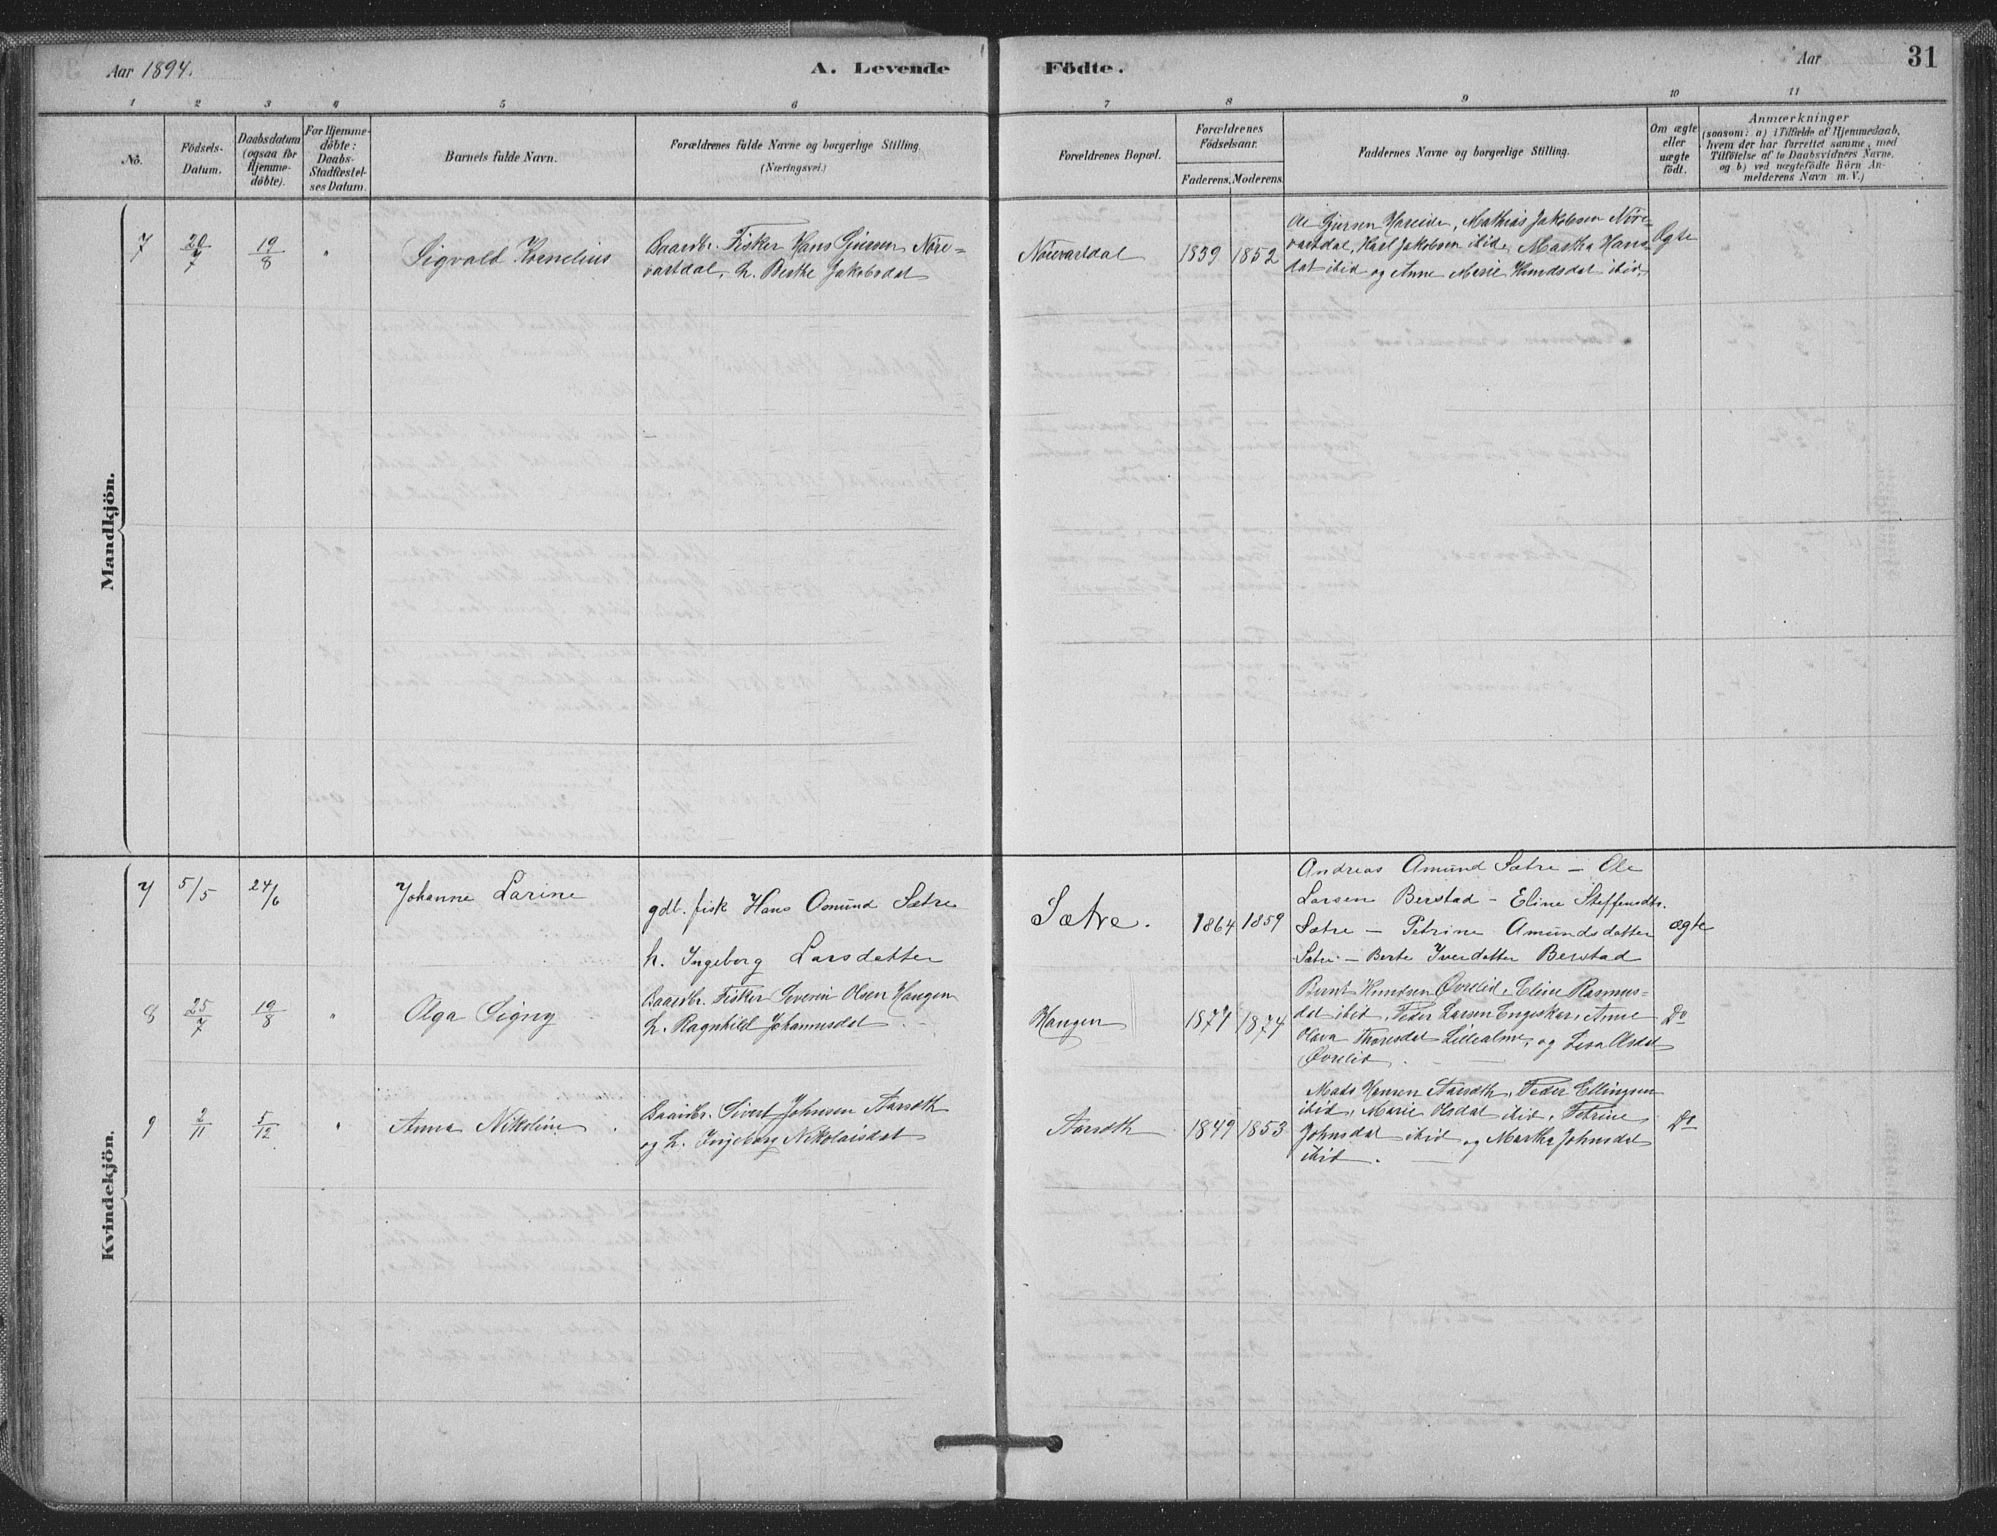 Aar 1894.
A. Levende Födte.
Aar
31
1 2 3 4 5 6 7 8 9 10 11
No.
Födsels-Datum.
Daabsdatum (ogsaa för Hjemme-döbte).
For Hjemme-döbte: Daabs-Stadfæstel-ses Datum.
Barnets fulde Navn.
Forældrenes fulde Navne og borgerlige Stilling.
(Næringsvei.)
Forældrenes Bopæl.
Forældrenes Födselsaar.
Faderens. Moderens.
Faddernes Navne og borgerlige Stilling.
Om ægte eller uægte födt.
Anmærkninger
(saasom: a) i Tilfælde af Hjemmedaab,
hvem der har forrettet samme, med
Tilföielse af to Daabsvidners Navne,
og b) ved uægtefödte Börn An-
melderens Navn m. V.)
Mandkjön.
7 20/7 19/8 " Sigvald Kornelius
Gaardbr. Fisker Hans Siversen Nøre-
vartdal, h. Berthe Jakobsdat
Nørevartdal 1839 1852
Ole Hareide, Mathias Jakobsen Nøre-
vartdal, Karl Jakobsen ibid, Martha Hans-
dat ibid og Anne Marie Knudsdat ibid.
Ægte
Kvindekjön.
7 5/5 24/6 Johanne Larine
gdb. fisk Hans Osmund Sætre
h. Ingeborg Larsdatter
Sætre. 1864 1859
Andreas Amund Sætre — Ole
Larsen Berstad — Eline Steffensdtr.
Sætre — Petrine Amundsdatter
Sætre — Berte Iverdatter Berstad
ægte
8 25/7 19/8 " Olga Signy
Gaardbr. Fisker Severin Olsen Haugen
h. Ragnhild Johannesdat
Haugen 1871 1874
Bernt Knudsen Øvrelid, Eline Rasmus-
dat ibid, Peder Larsen Engeskar, Anne
Olava Thoresdat Lillealme, og Lisa Olsdat
Øvrelid
Do
9 2/11 5/12 " Anna Nikoline
Gaardbr. Sivert Johnsen Aarseth
og h. Ingeborg Nikolaisdat
Aarseth 1849 1853
Mads Hansen Aarseth, Peder Ellingsen
ibid, Marie Olsdat ibid, Petrine
Johnsdat ibid og Martha Johnsdat
ibid.
Do